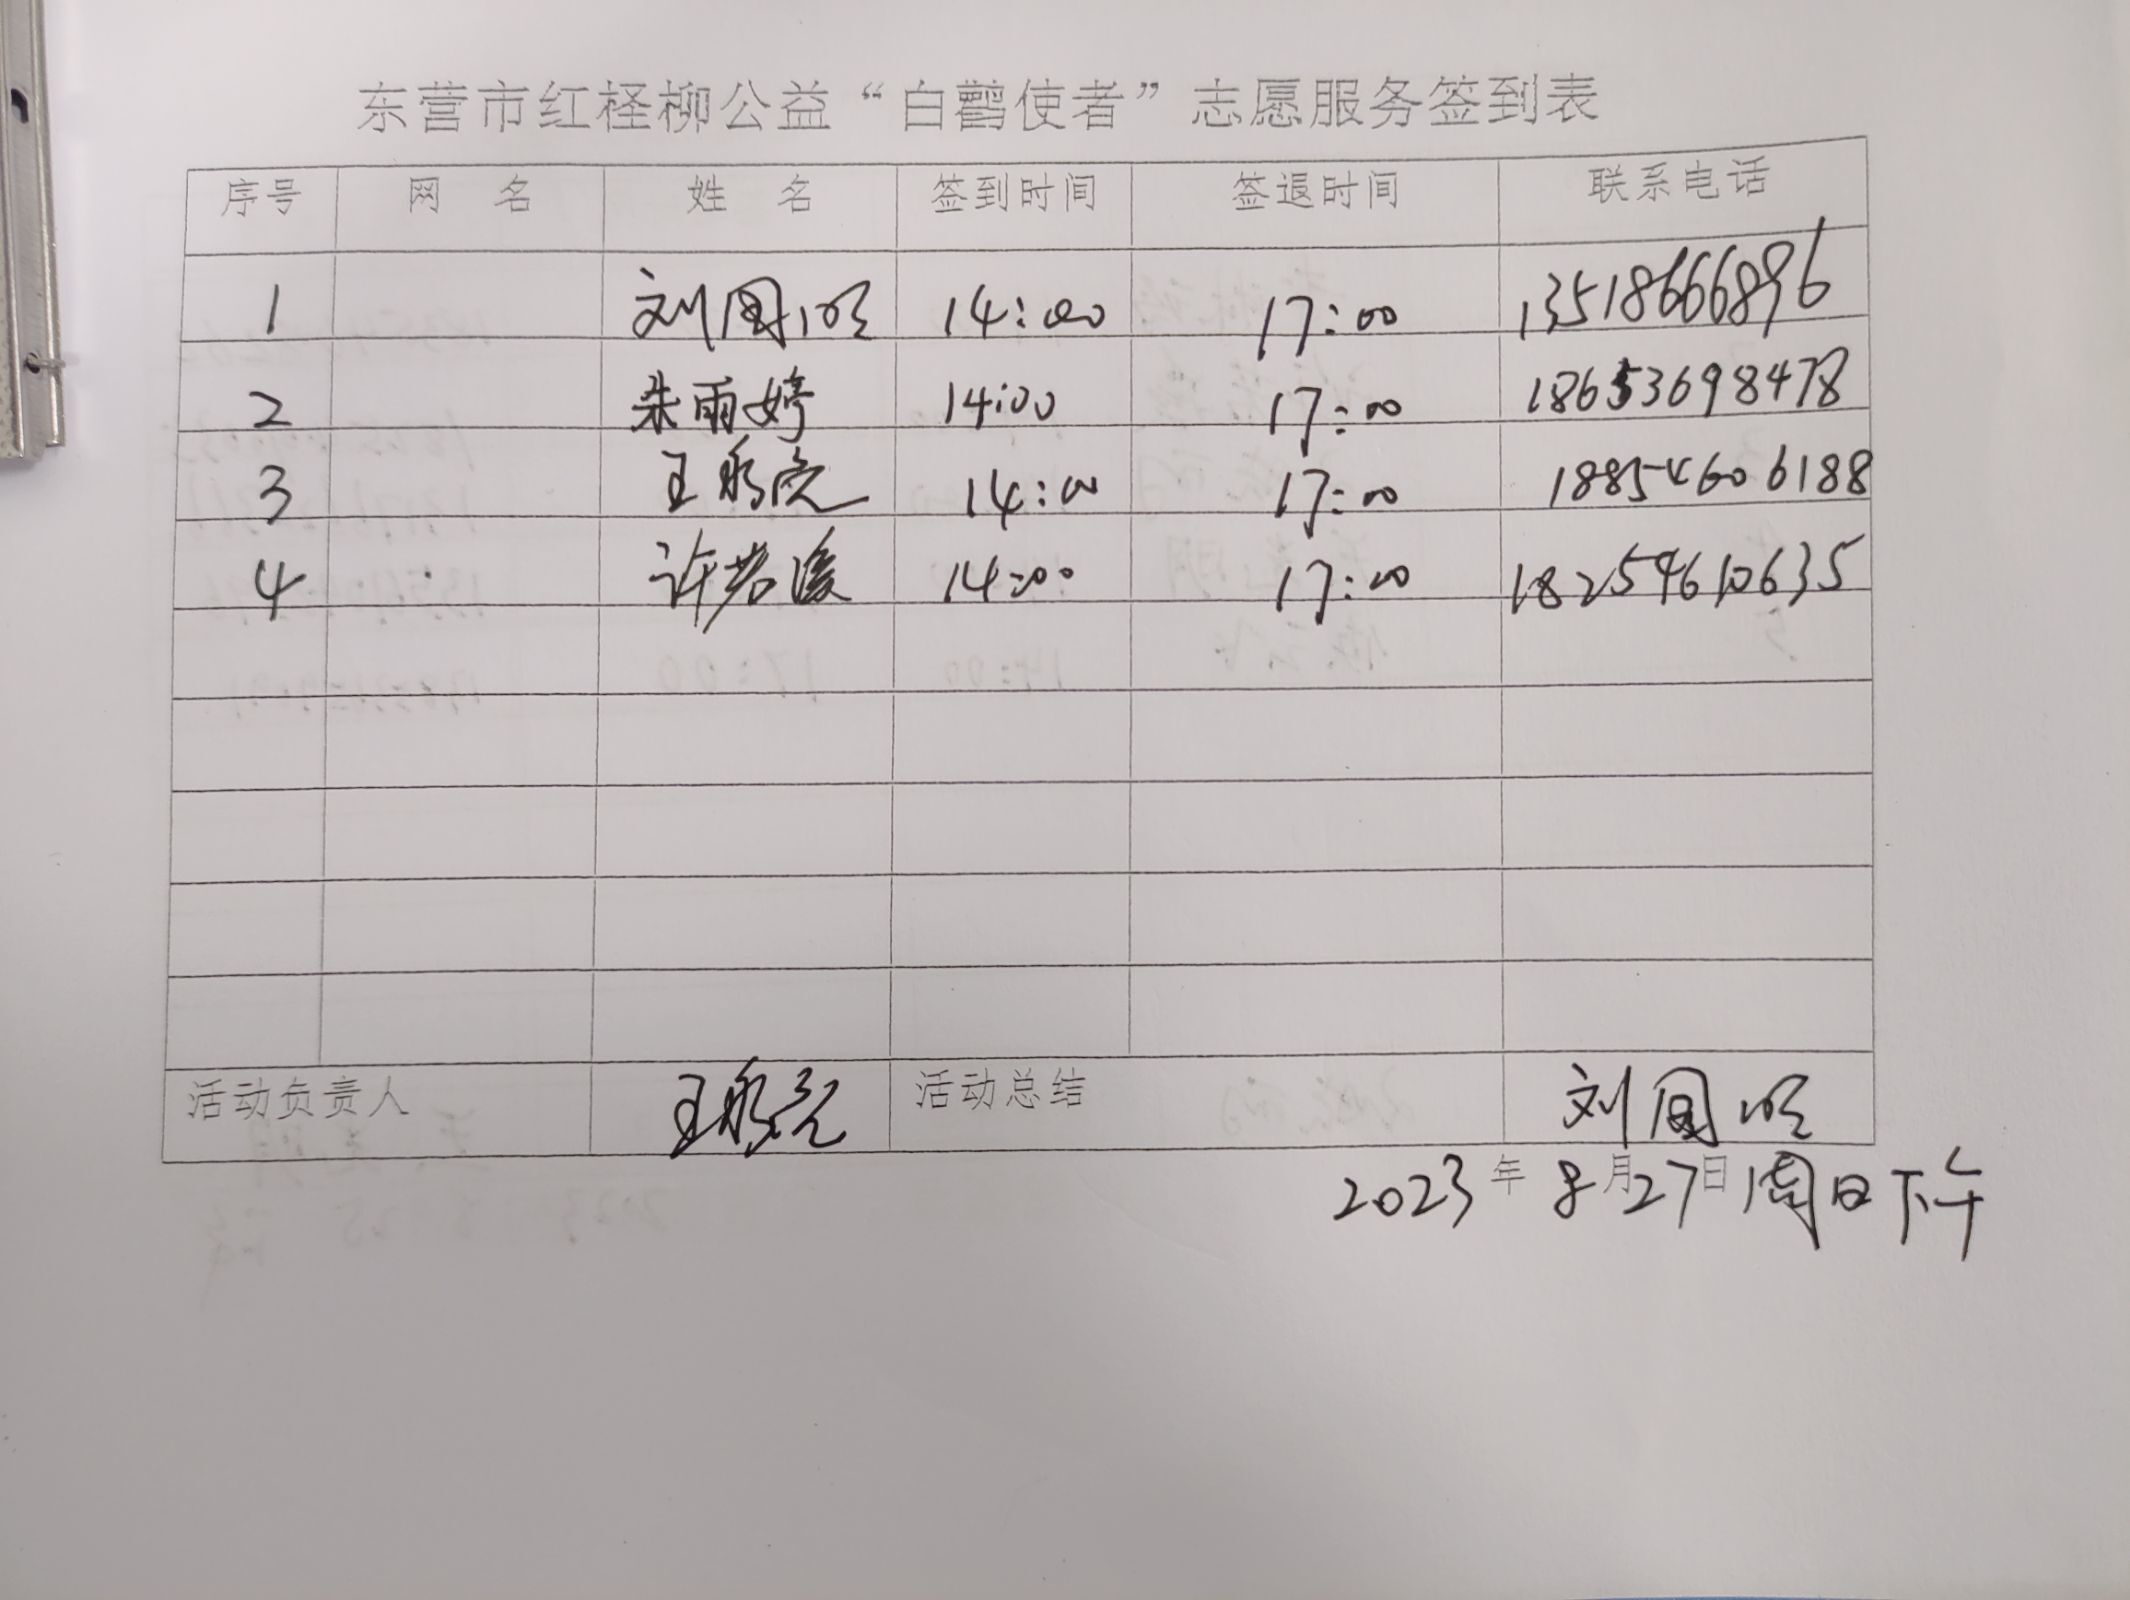 东营市红柽柳公益“白鹳使者”志愿服务签到表
序号 网 名 姓 名 签到时间 签退时间 联系电话
1 刘国明 14:00 17:00 13518666896
2 朱雨婷 14:00 17:00 18653698478
3 王彩亮 14:00 17:00 18854606188
4 许若浚 14:00 17:00 18254610635
活动负责人 王彩亮 活动总结 刘国明
2023年8月27日周日下午